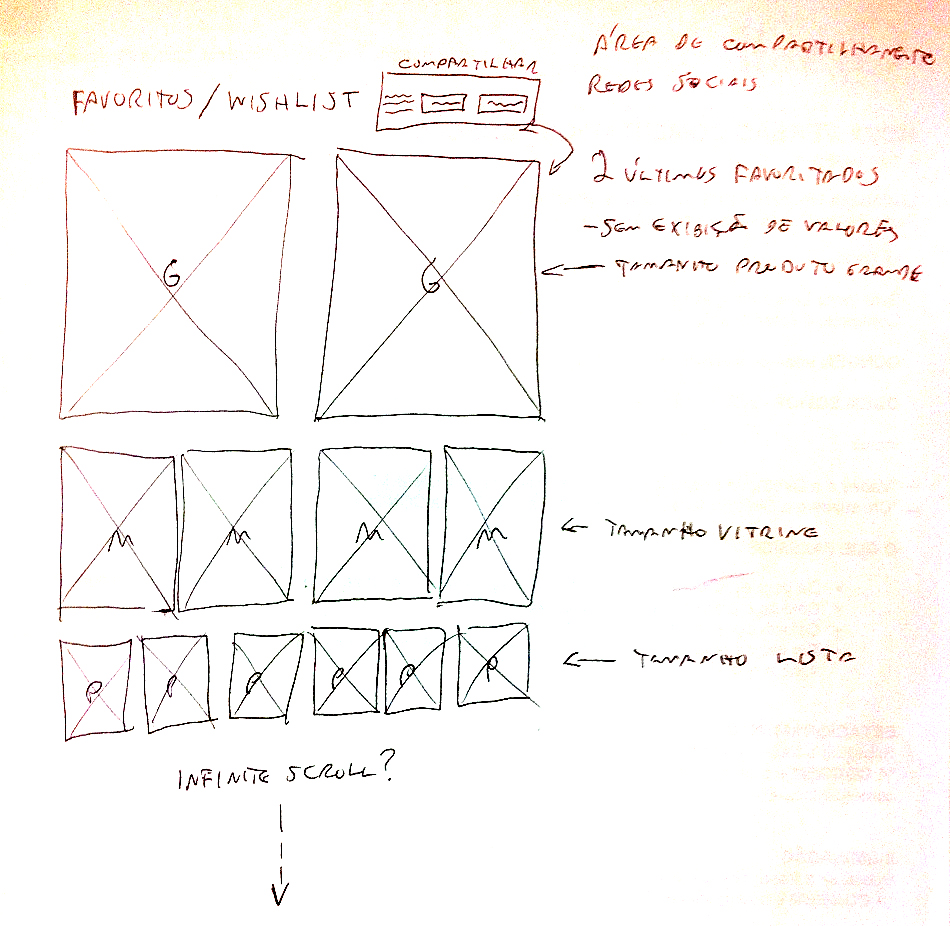 COMPARTILHAR
FAVORITOS / WISHLIST
ÁREA DE COMPARTILHAMENTO
REDES SOCIAIS
2 ÚLTIMOS FAVORITADOS
- SEM EXIBIÇÃO DE VALORES
TAMANHO PRODUTO GRANDE
G G
M M M M
TAMANHO VITRINE
P P P P P P
TAMANHO LISTA
INFINITE SCROLL?